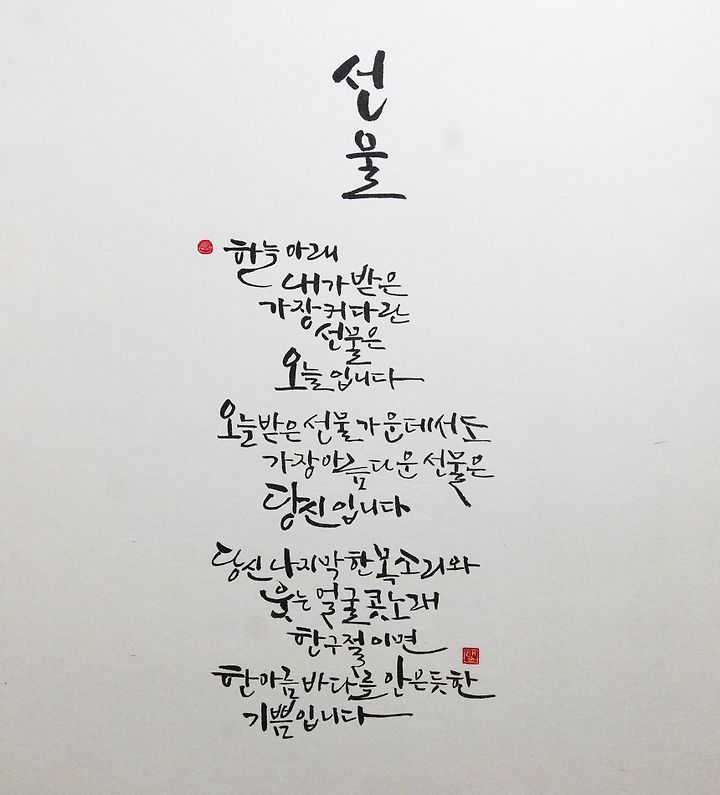 선
물
하늘 아래
내가 받은
가장 커다란
선물은
오늘입니다
오늘 받은 선물 가운데서도
가장 아름다운 선물은
당신입니다
당신 나지막한 목소리와
웃는 얼굴 콧노래
한구절이면
한아름 바다를 안은듯한
기쁨입니다